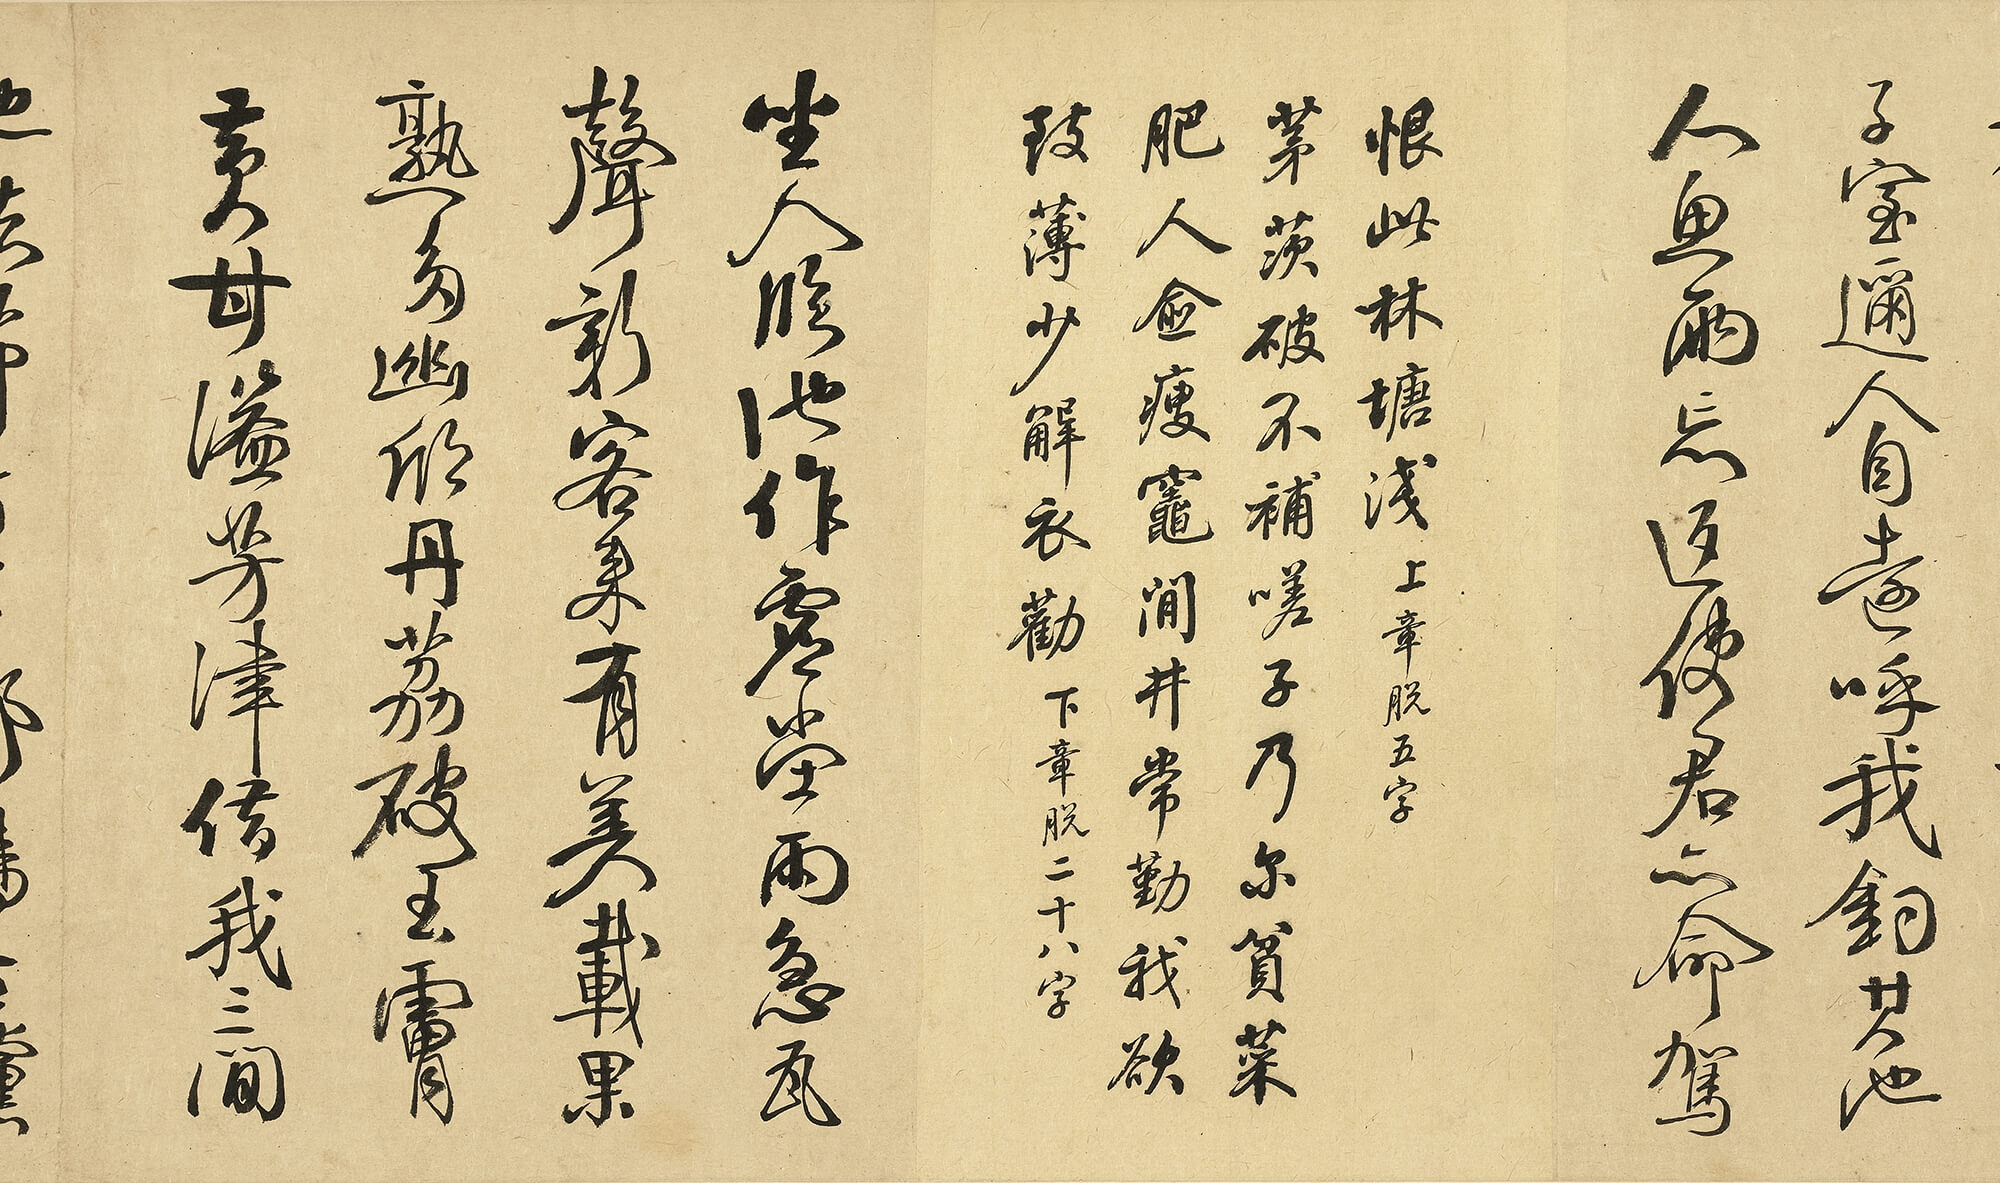 子室邇人自遠呼我釣其池
人魚兩忘返使君亦命駕
恨此林塘淺 上章脱五字
茅茨破不補嗟子乃尔貧菜
肥人愈瘦竈閒井常勤我欲
致薄少解衣勸 下章脱二十八字
坐人臨池作虛堂雨急瓦
聲新客來有美載果
熟多幽欣丹荔破玉膚
黃甘溢芳津借我三間